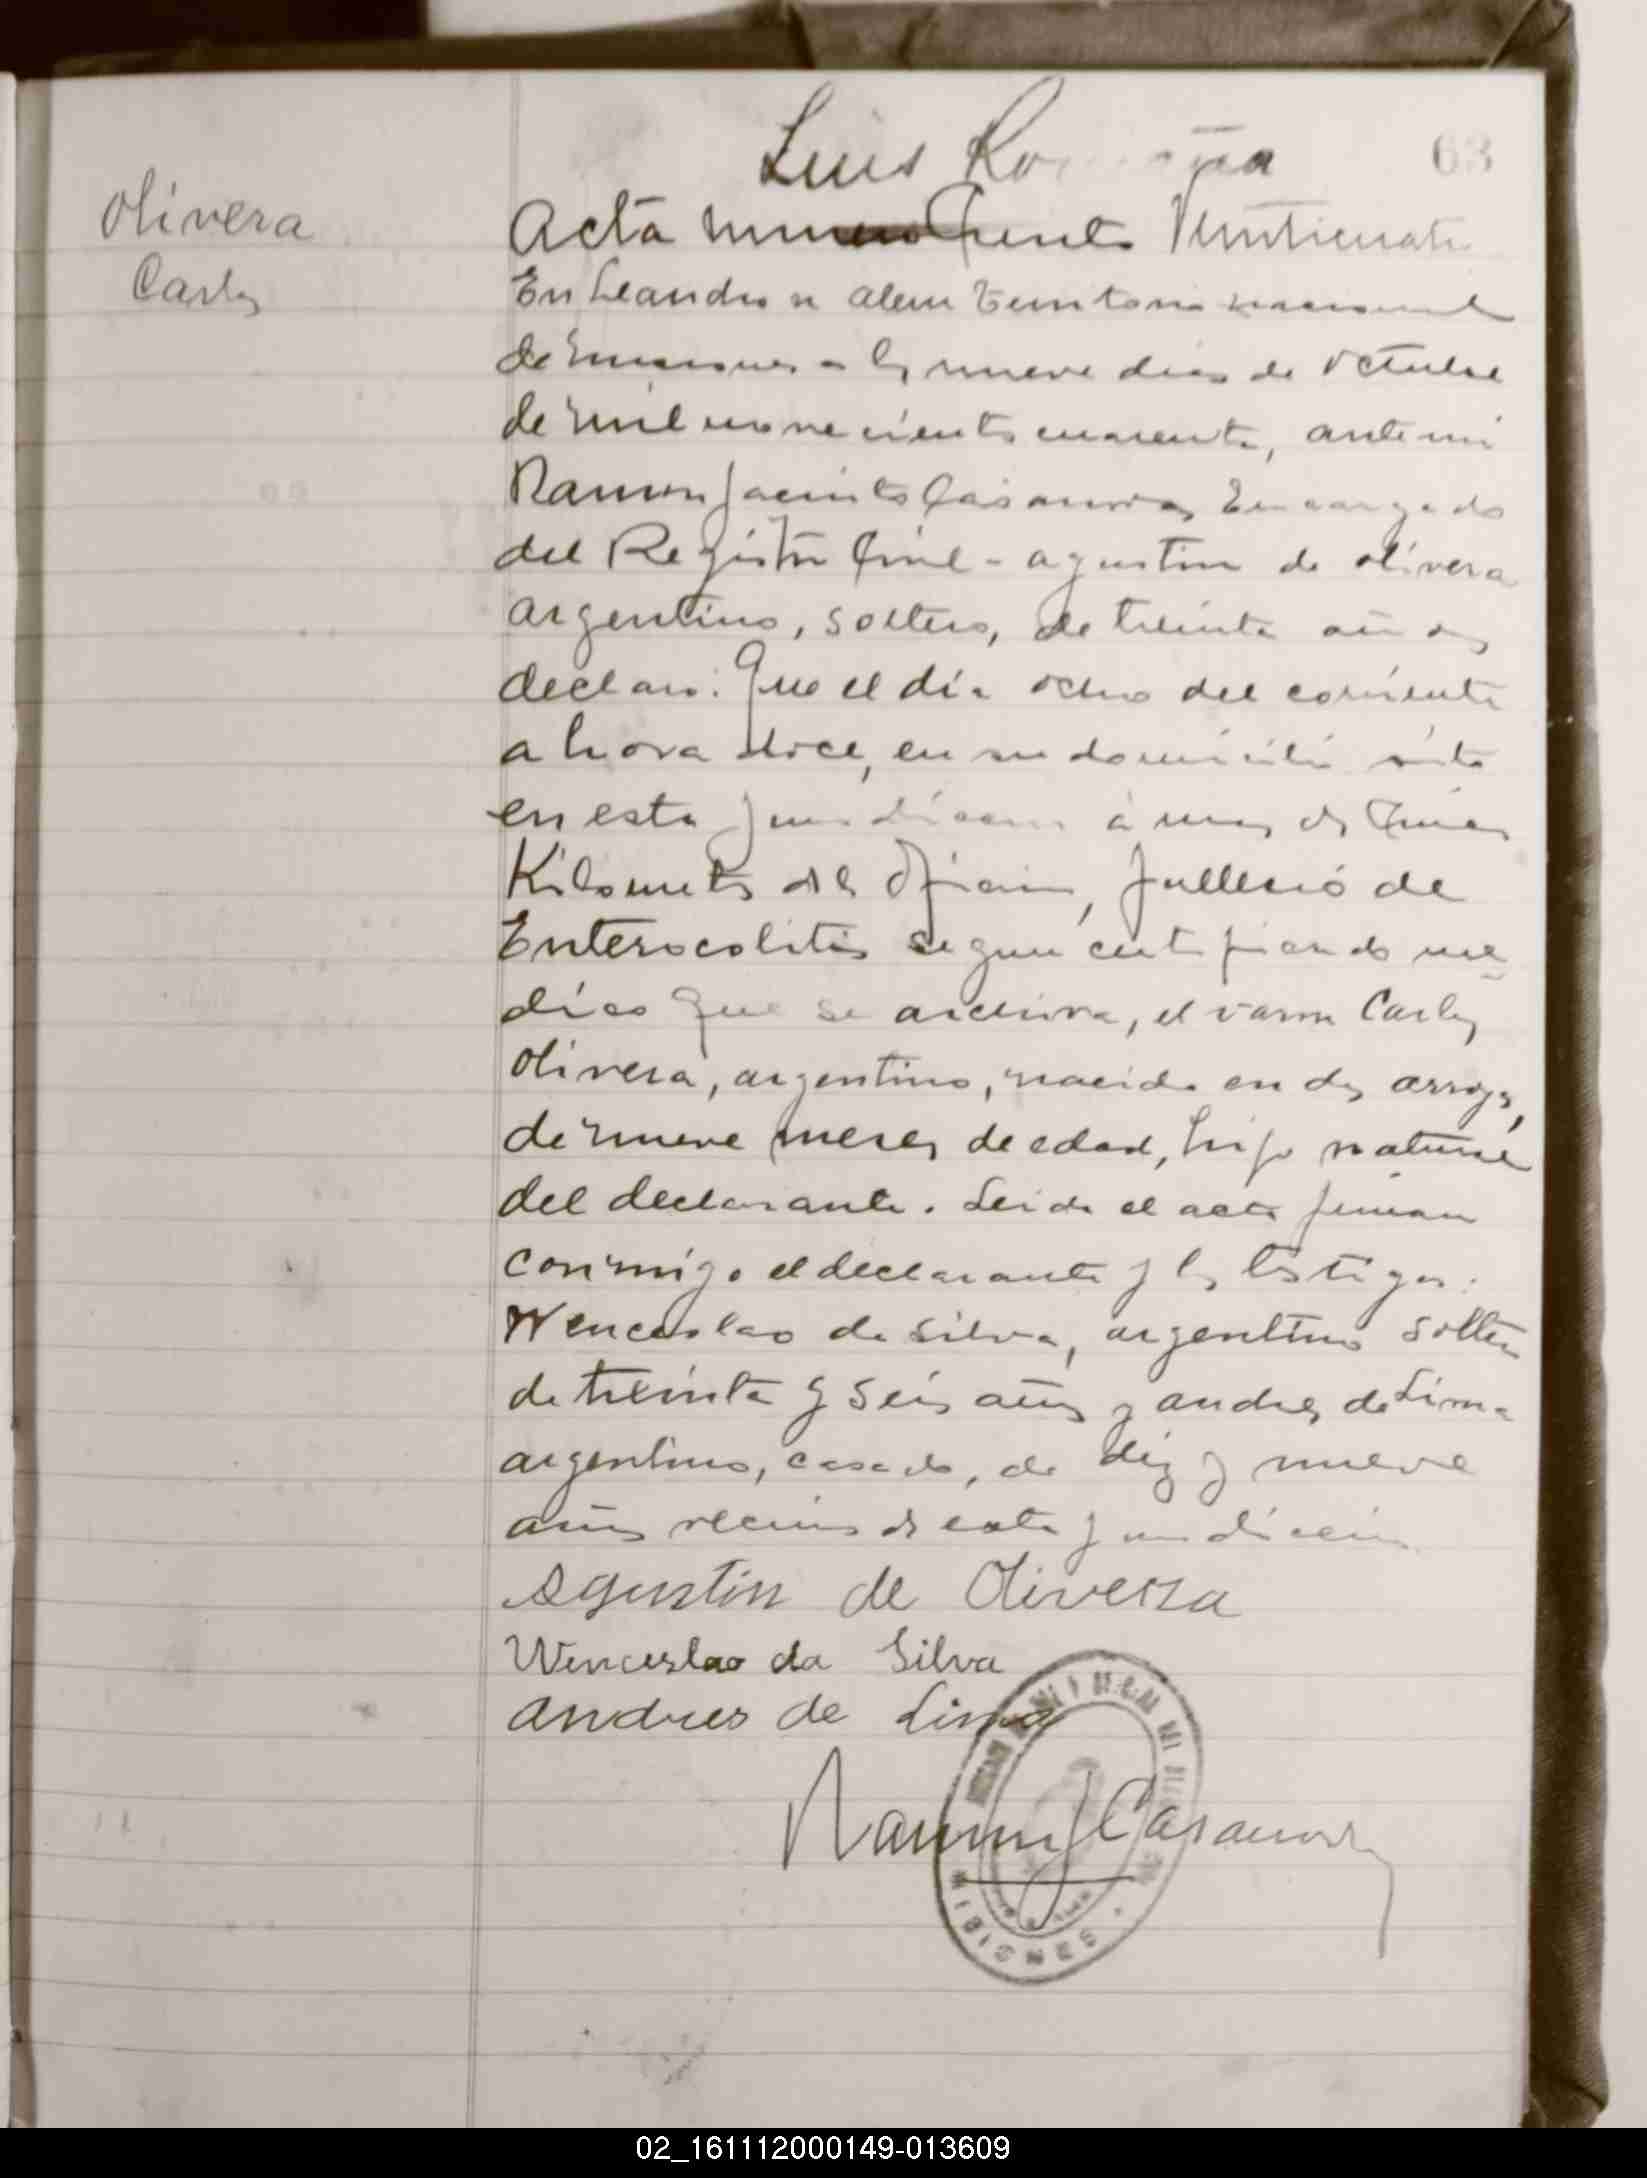 Luis
63
Olivera
Carlos
Acta numero Ciento Venticuatro
En Leandro n alem territorio nacional
de misiones a los nueve dias de octubre
de mil novecientos cuarenta, ante mi
Ramon Jacinto Casanova, Encargado
del Registro Civil - agustin de olivera
argentino, soltero, de treinta años
declaro: Que el dia ocho del corriente
a hora doce, en su domicilio sito
en esta jurisdiccion a unos
Kilometros de la Oficina, fallecio de
Enterocolitis segun certificado me-
dico que se archiva, el varon Carlos
Olivera, argentino, nacido en dos arroyos,
de nueve meses de edad, hijo natural
del declarante. Leida el acta firman
conmigo el declarante y los testigos:
Wenceslao da Silva, argentino soltero
de treinta y seis años y andres de Lima
argentino, casado, de diez y nueve
años vecinos de esta jurisdiccion
Agustin de Olivera
Wenceslao da Silva
andres de Lima
Ramon J Casanova
MISIONES
02_161112000149-013609